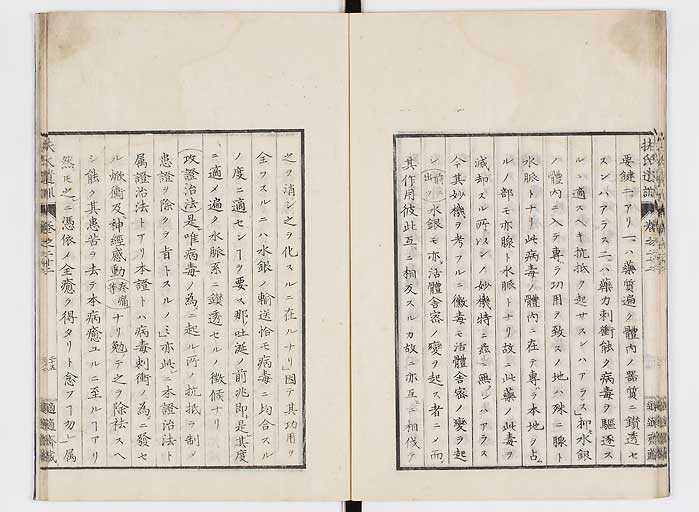 要鍵二アリ一ハ藥質遍ク體內ノ器質ニ鑽透セ
スンハアラス二ハ藥力刺衝餘ク病毒ヲ驅逐ス
ルニ適スヘキ抵抗ヲ起サスンハアラス抑水銀
ノ體內ニ入テ專ラ功用ヲ致スノ地ハ殊ニ腺ト
水脈トナリ此病毒ノ體內ニ在テ專ラ本地ヲ占
ルノ部モ亦腺ト水脈トナリ故ニ此藥ノ此毒ヲ
減却スル所以ンノ妙機特ニ無ンハアラス
今其妙機ヲ考フルニ黴毒モ活體舍密ノ變ヲ起
シ前ニ出ツ水銀モ亦活體舍密ノ變ヲ起ス者ニメ而
其作用彼此互ニ相反スルカ故ニ亦互ニ相伐テ
之ヲ消シ之ヲ化スルニ在ルナリ因テ其功用ヲ
全フスルニハ水銀ノ輸送恰モ病毒ニ均合スル
ノ度ニ適センヿヲ要ス那ノ吐涎ノ前兆即是其度
ニ適メ遍ク水脈系ニ鑽透セルノ徵候ナリ
攻證治法是唯病毒ノ為ニ起ル所ノ抵抗ヲ制メ
患證ヲ除クヲ旨トスルノミ亦此ニ本證治法ト
屬證治法トアリ本證トハ病毒刺衝ノ為ニ發セ
ル焮衝及神經感動疼痛等ナリ勉テ之ヲ除祛スヘ
シ能ク其患苦ヲ去テ本病癒ユルニ至ルヿアリ
然モ之ニ憑依メ全癒ヲ得タリト念フヿ勿レ屬
扶氏遺訓 卷之二十二
二十五
適適齋藏